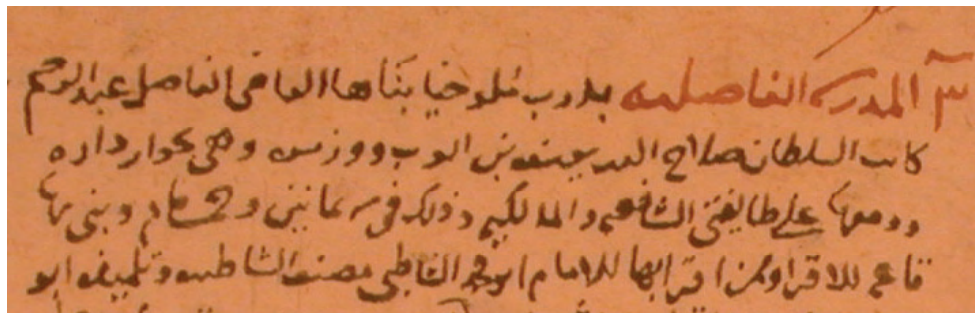 المدرسة الفاضلية بدرب ملوخيا بناها القاضى الفاضل عبد الرحيم
كاتب السلطان صلاح الدين يوسف بن ايوب ووزيره وهى بجوار داره
ووقفها على طايفتى الشافعيه والمالكيه وذلك فى سنة ثمانين وخمسمايه وبنى بها
قاعه للاقرا وممن اقرا بها الامام ابو محمد الشاطبى مصنف الشاطبيه وتلميذه ابو